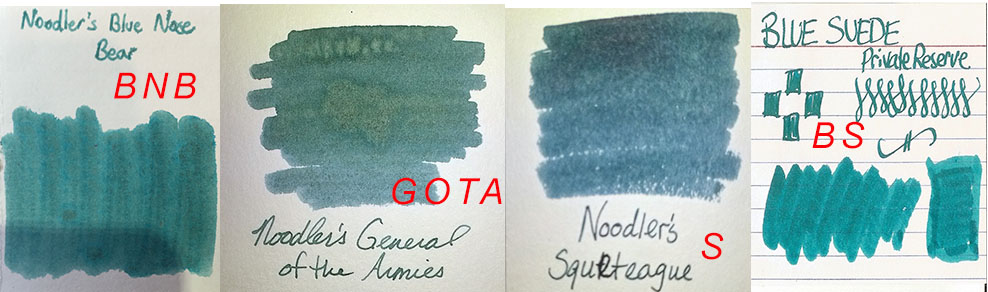 Noodler's Blue Nose
Bear
BNB
GOTA
Noodler's General
of the Armies
Noodler's
Squeteague
S
BLUE SUEDE
Private Reserve
BS